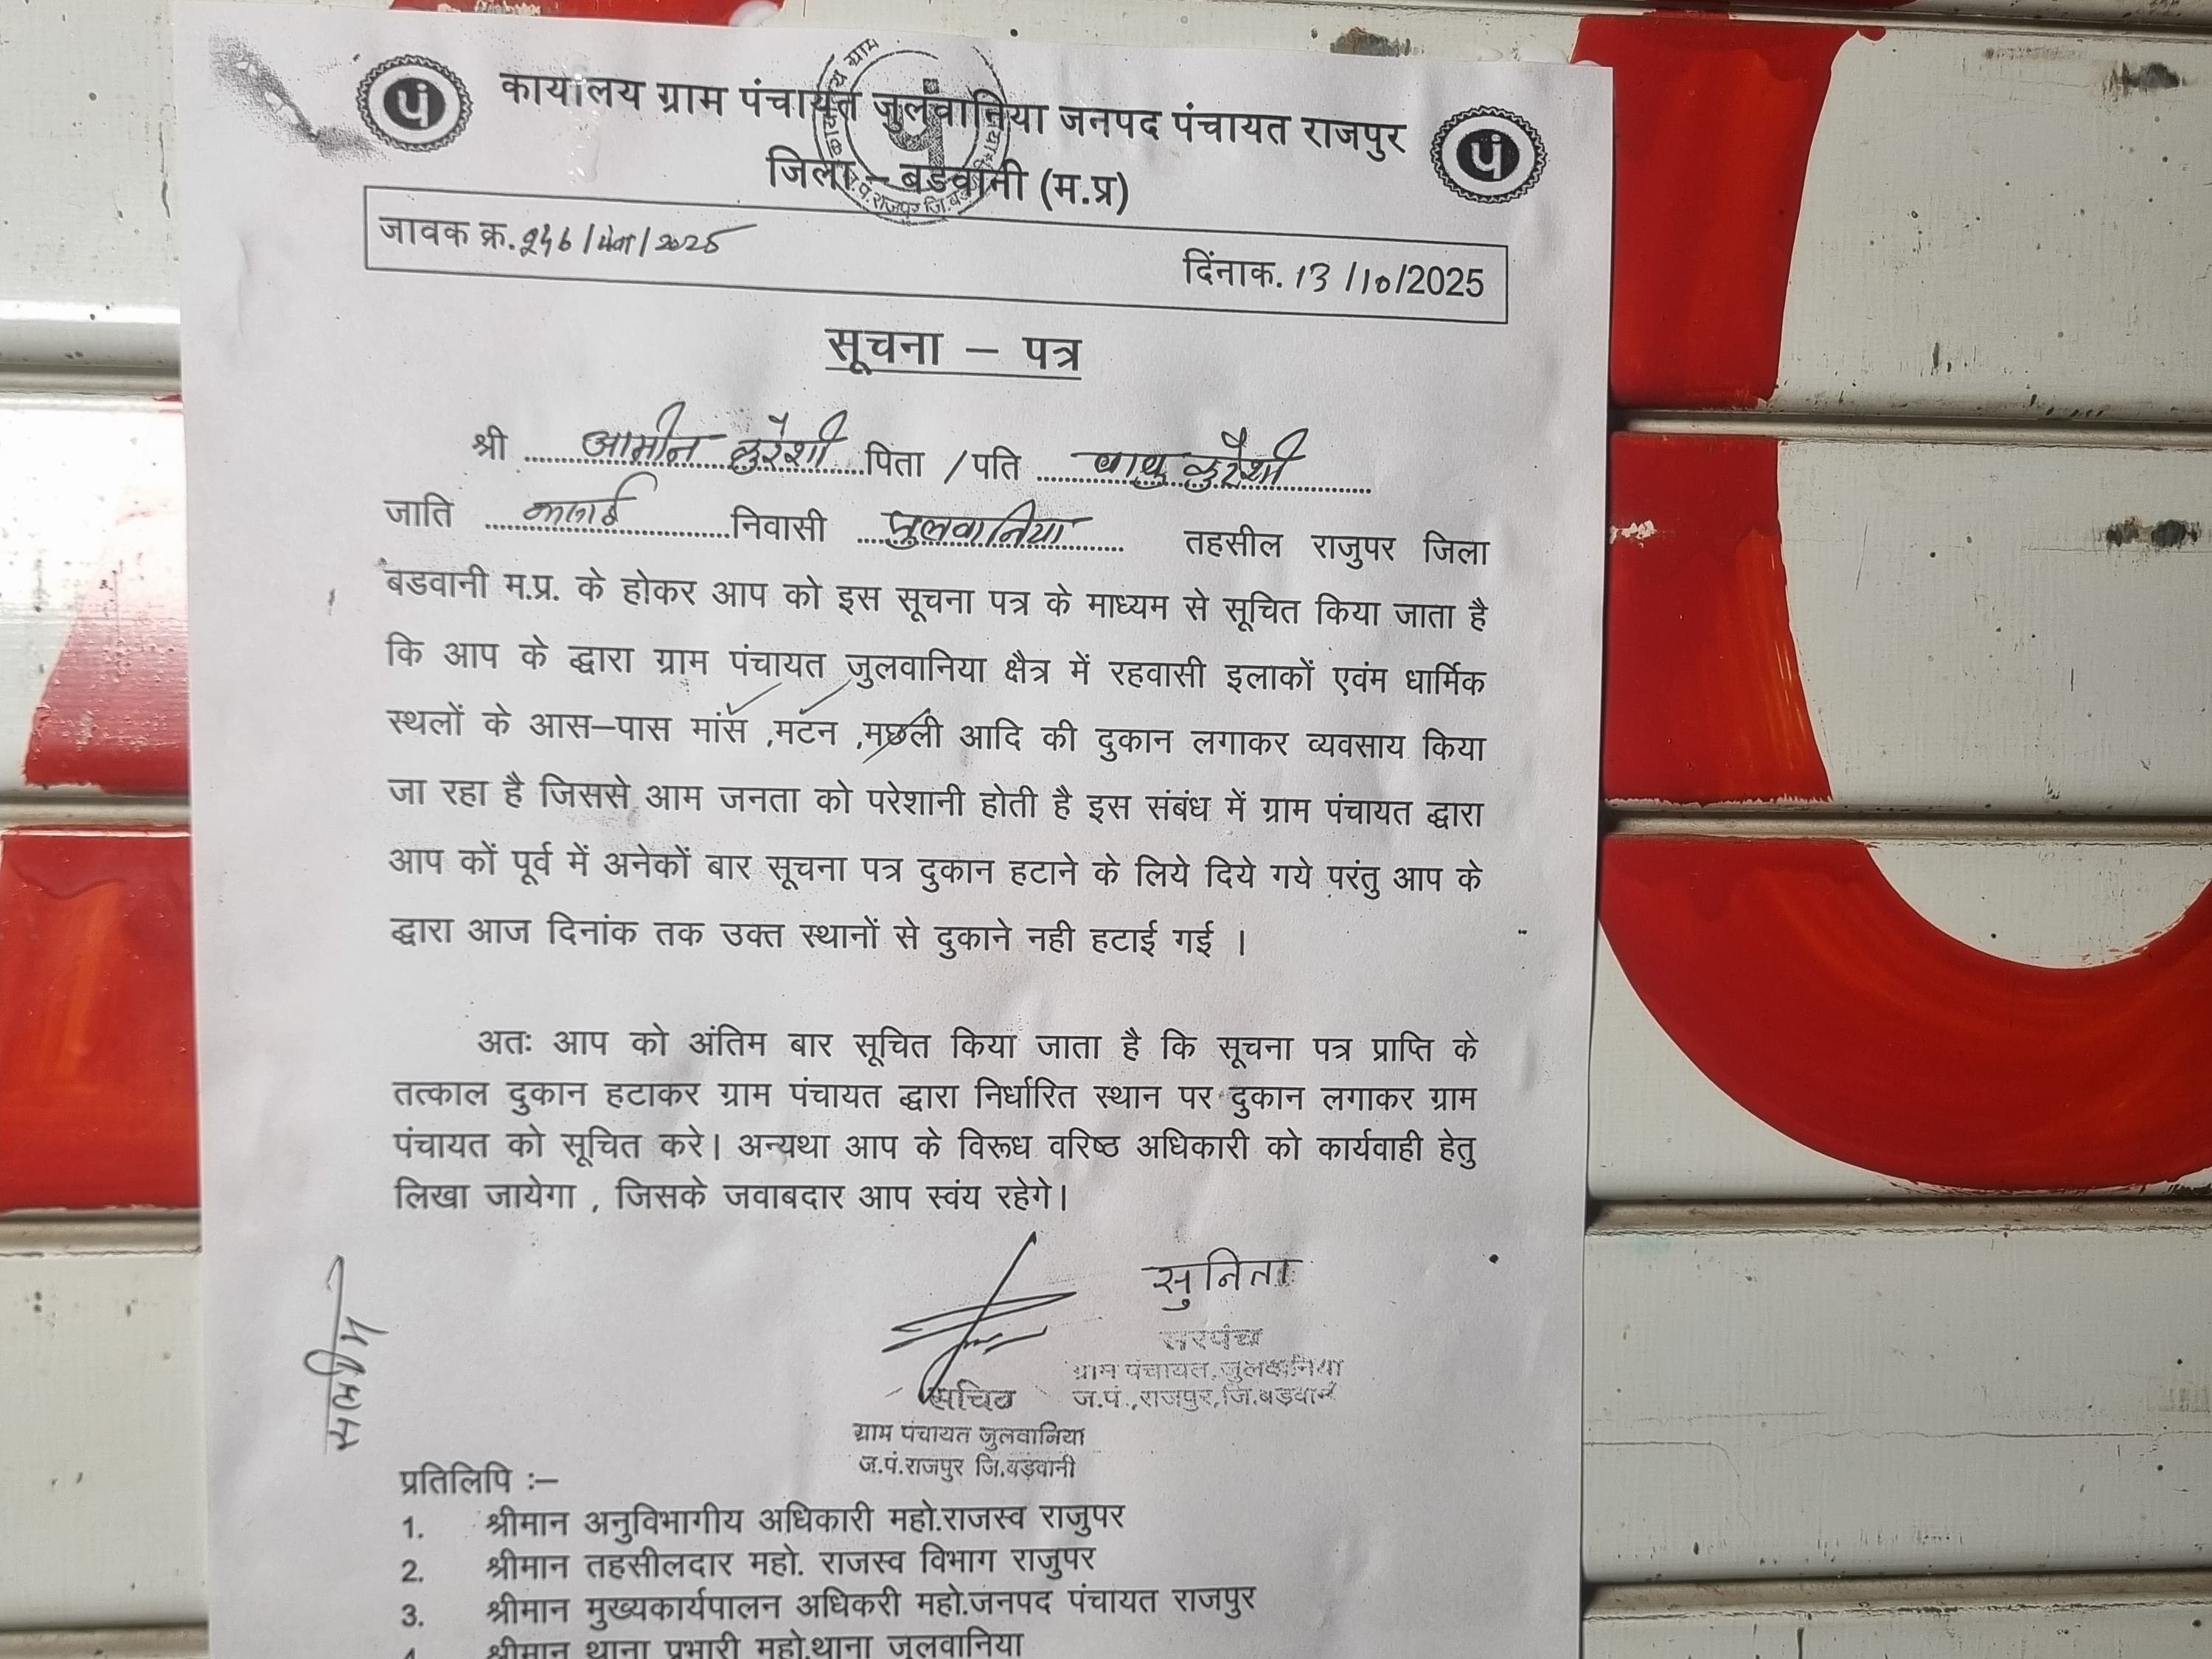 कार्यालय ग्राम पंचायत जुलवानिया जनपद पंचायत राजपुर
जिला – बडवानी (म.प्र)
जावक क्र. 246 / /2025
दिंनाक. 13/10/2025
सूचना – पत्र
श्री आमीन कुरेशी पिता / पति बाबु कुरैशी
जाति कसाई निवासी जुलवानिया तहसील राजुपर जिला
बडवानी म.प्र. के होकर आप को इस सूचना पत्र के माध्यम से सूचित किया जाता है
कि आप के द्धारा ग्राम पंचायत जुलवानिया क्षैत्र में रहवासी इलाकों एवंम धार्मिक
स्थलों के आस–पास मांस ,मटन ,मछली आदि की दुकान लगाकर व्यवसाय किया
जा रहा है जिससे आम जनता को परेशानी होती है इस संबंध में ग्राम पंचायत द्धारा
आप कों पूर्व में अनेकों बार सूचना पत्र दुकान हटाने के लिये दिये गये परंतु आप के
द्धारा आज दिनांक तक उक्त स्थानों से दुकाने नही हटाई गई ।
अतः आप को अंतिम बार सूचित किया जाता है कि सूचना पत्र प्राप्ति के
तत्काल दुकान हटाकर ग्राम पंचायत द्धारा निर्धारित स्थान पर दुकान लगाकर ग्राम
पंचायत को सूचित करे। अन्यथा आप के विरूध वरिष्ठ अधिकारी को कार्यवाही हेतु
लिखा जायेगा , जिसके जवाबदार आप स्वंय रहेगे।
सुनिता
सरपंच
ग्राम पंचायत,जुलवानिया
ज.पं.,राजपुर,जि.बड़वानी
सचिव
ग्राम पंचायत जुलवानिया
ज.पं.राजपुर जि.बड़वानी
सलीम
प्रतिलिपि :–
1. श्रीमान अनुविभागीय अधिकारी महो.राजस्व राजुपर
2. श्रीमान तहसीलदार महो. राजस्व विभाग राजुपर
3. श्रीमान मुख्यकार्यपालन अधिकरी महो.जनपद पंचायत राजपुर
4. श्रीमान थाना प्रभारी महो.थाना जुलवानिया